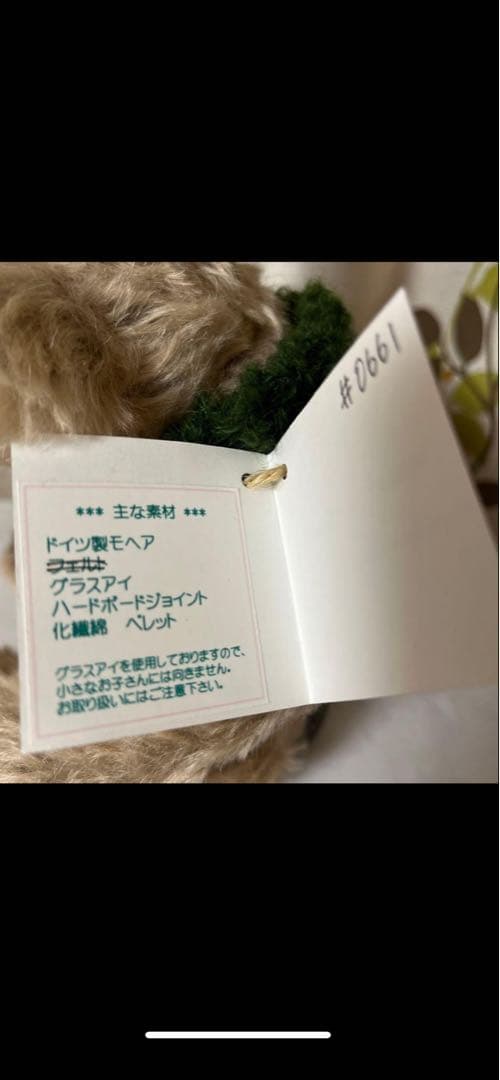 *** 主な素材 ***
ドイツ製モヘア
フェルト
グラスアイ
ハードボードジョイント
化繊綿　ペレット
グラスアイを使用しておりますので、
小さなお子さんには向きません。
お取り扱いにはご注意下さい。
#0661